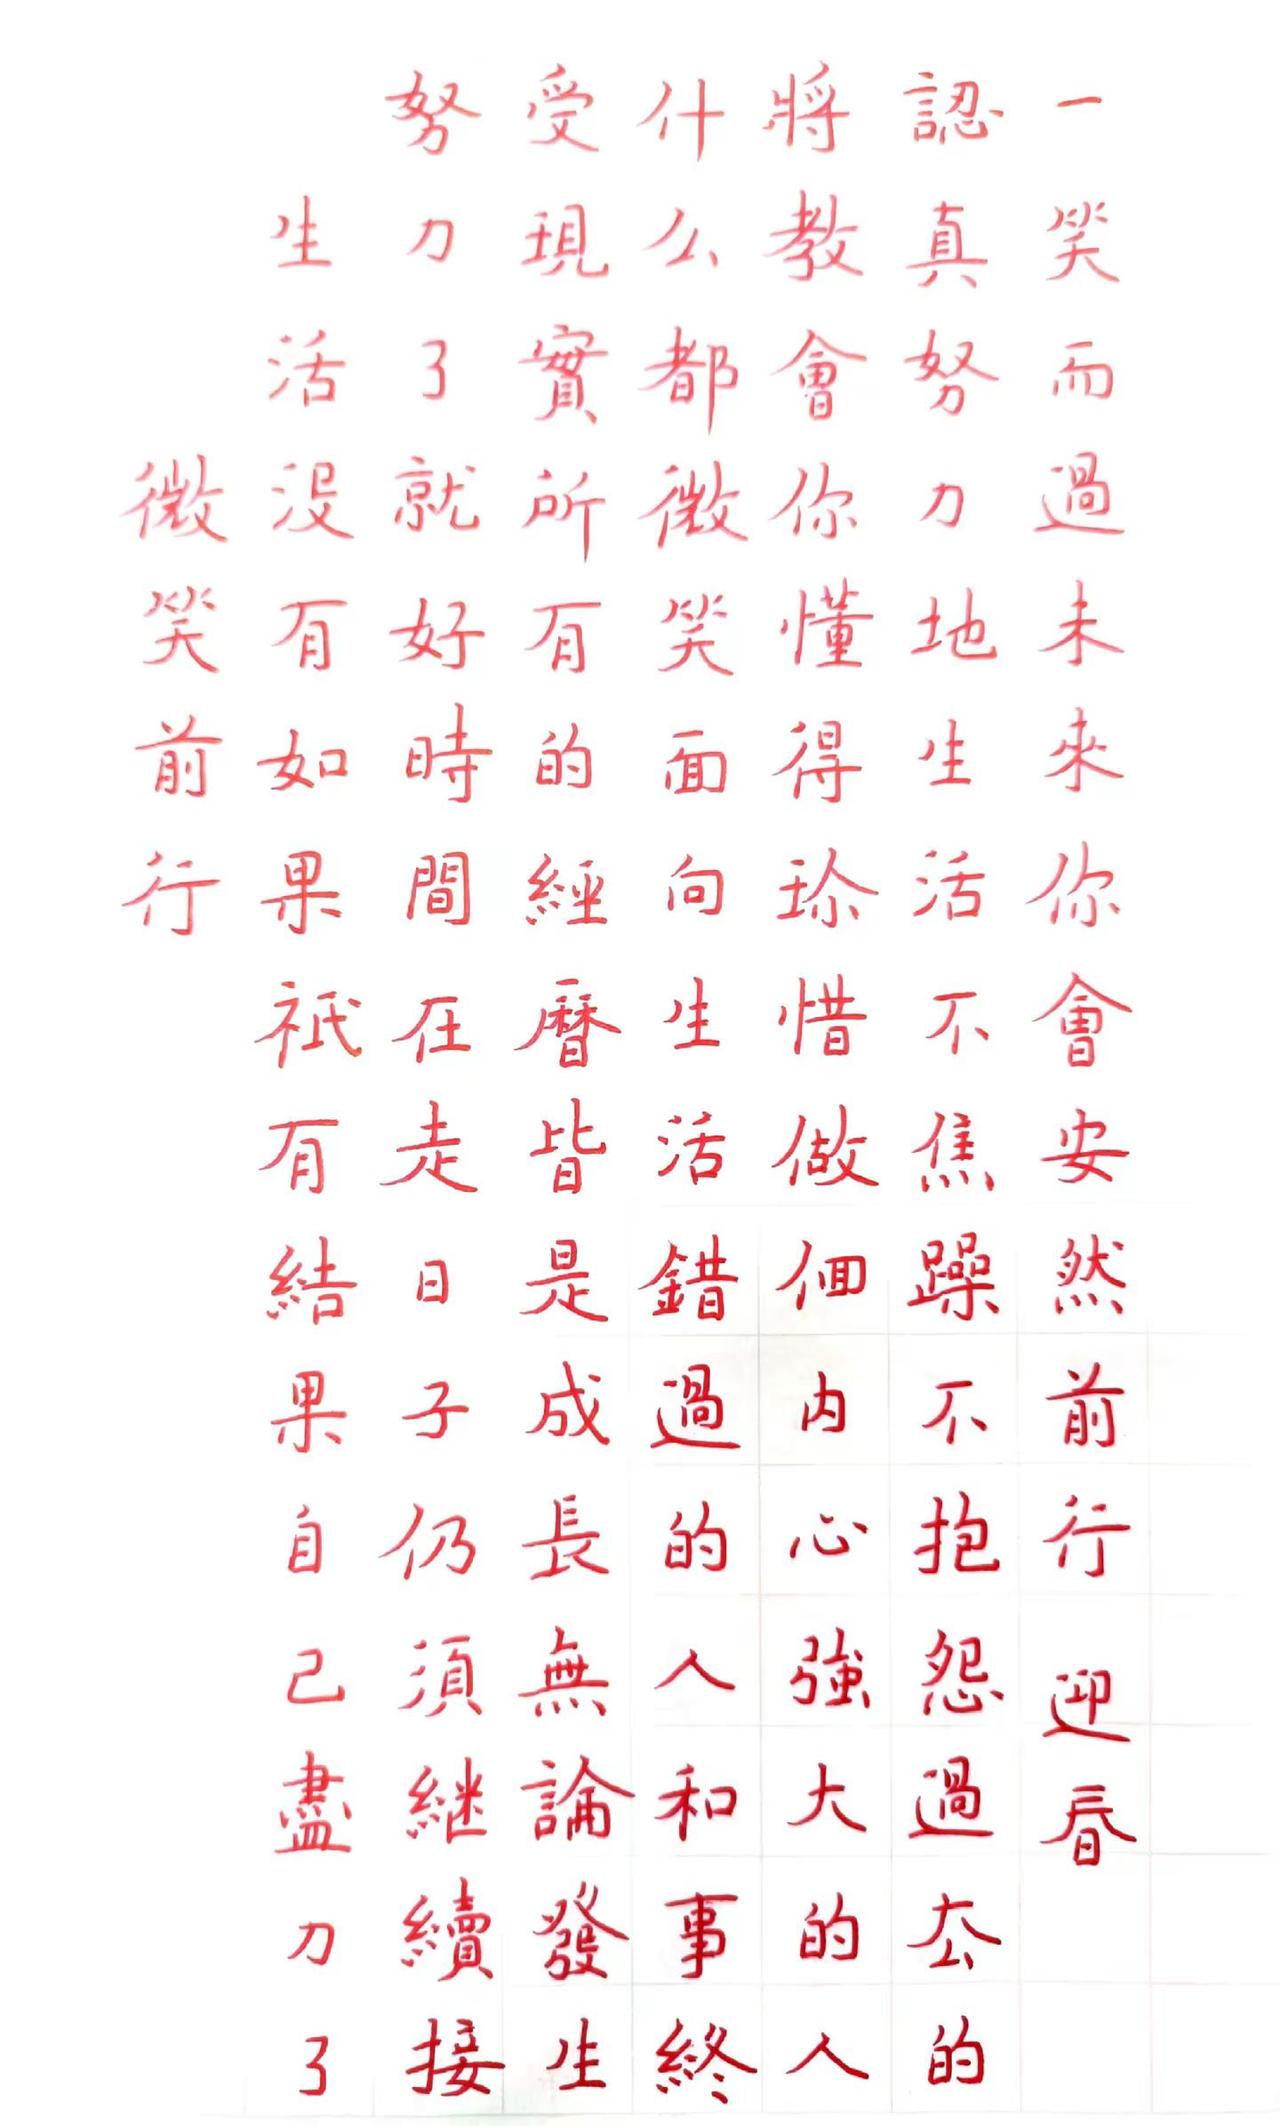 一笑而過未來你會安然前行 迎春
認真努力地生活不焦躁不抱怨過厺的
將教會你懂得珎惜做個內心強大的人
什么都微笑面向生活錯過的人和事終
受現實所有的經曆皆是成長無論發生
努力了就好時間在走日子仍須継續接
生活没有如果祇有結果自己盡力了
微笑前行